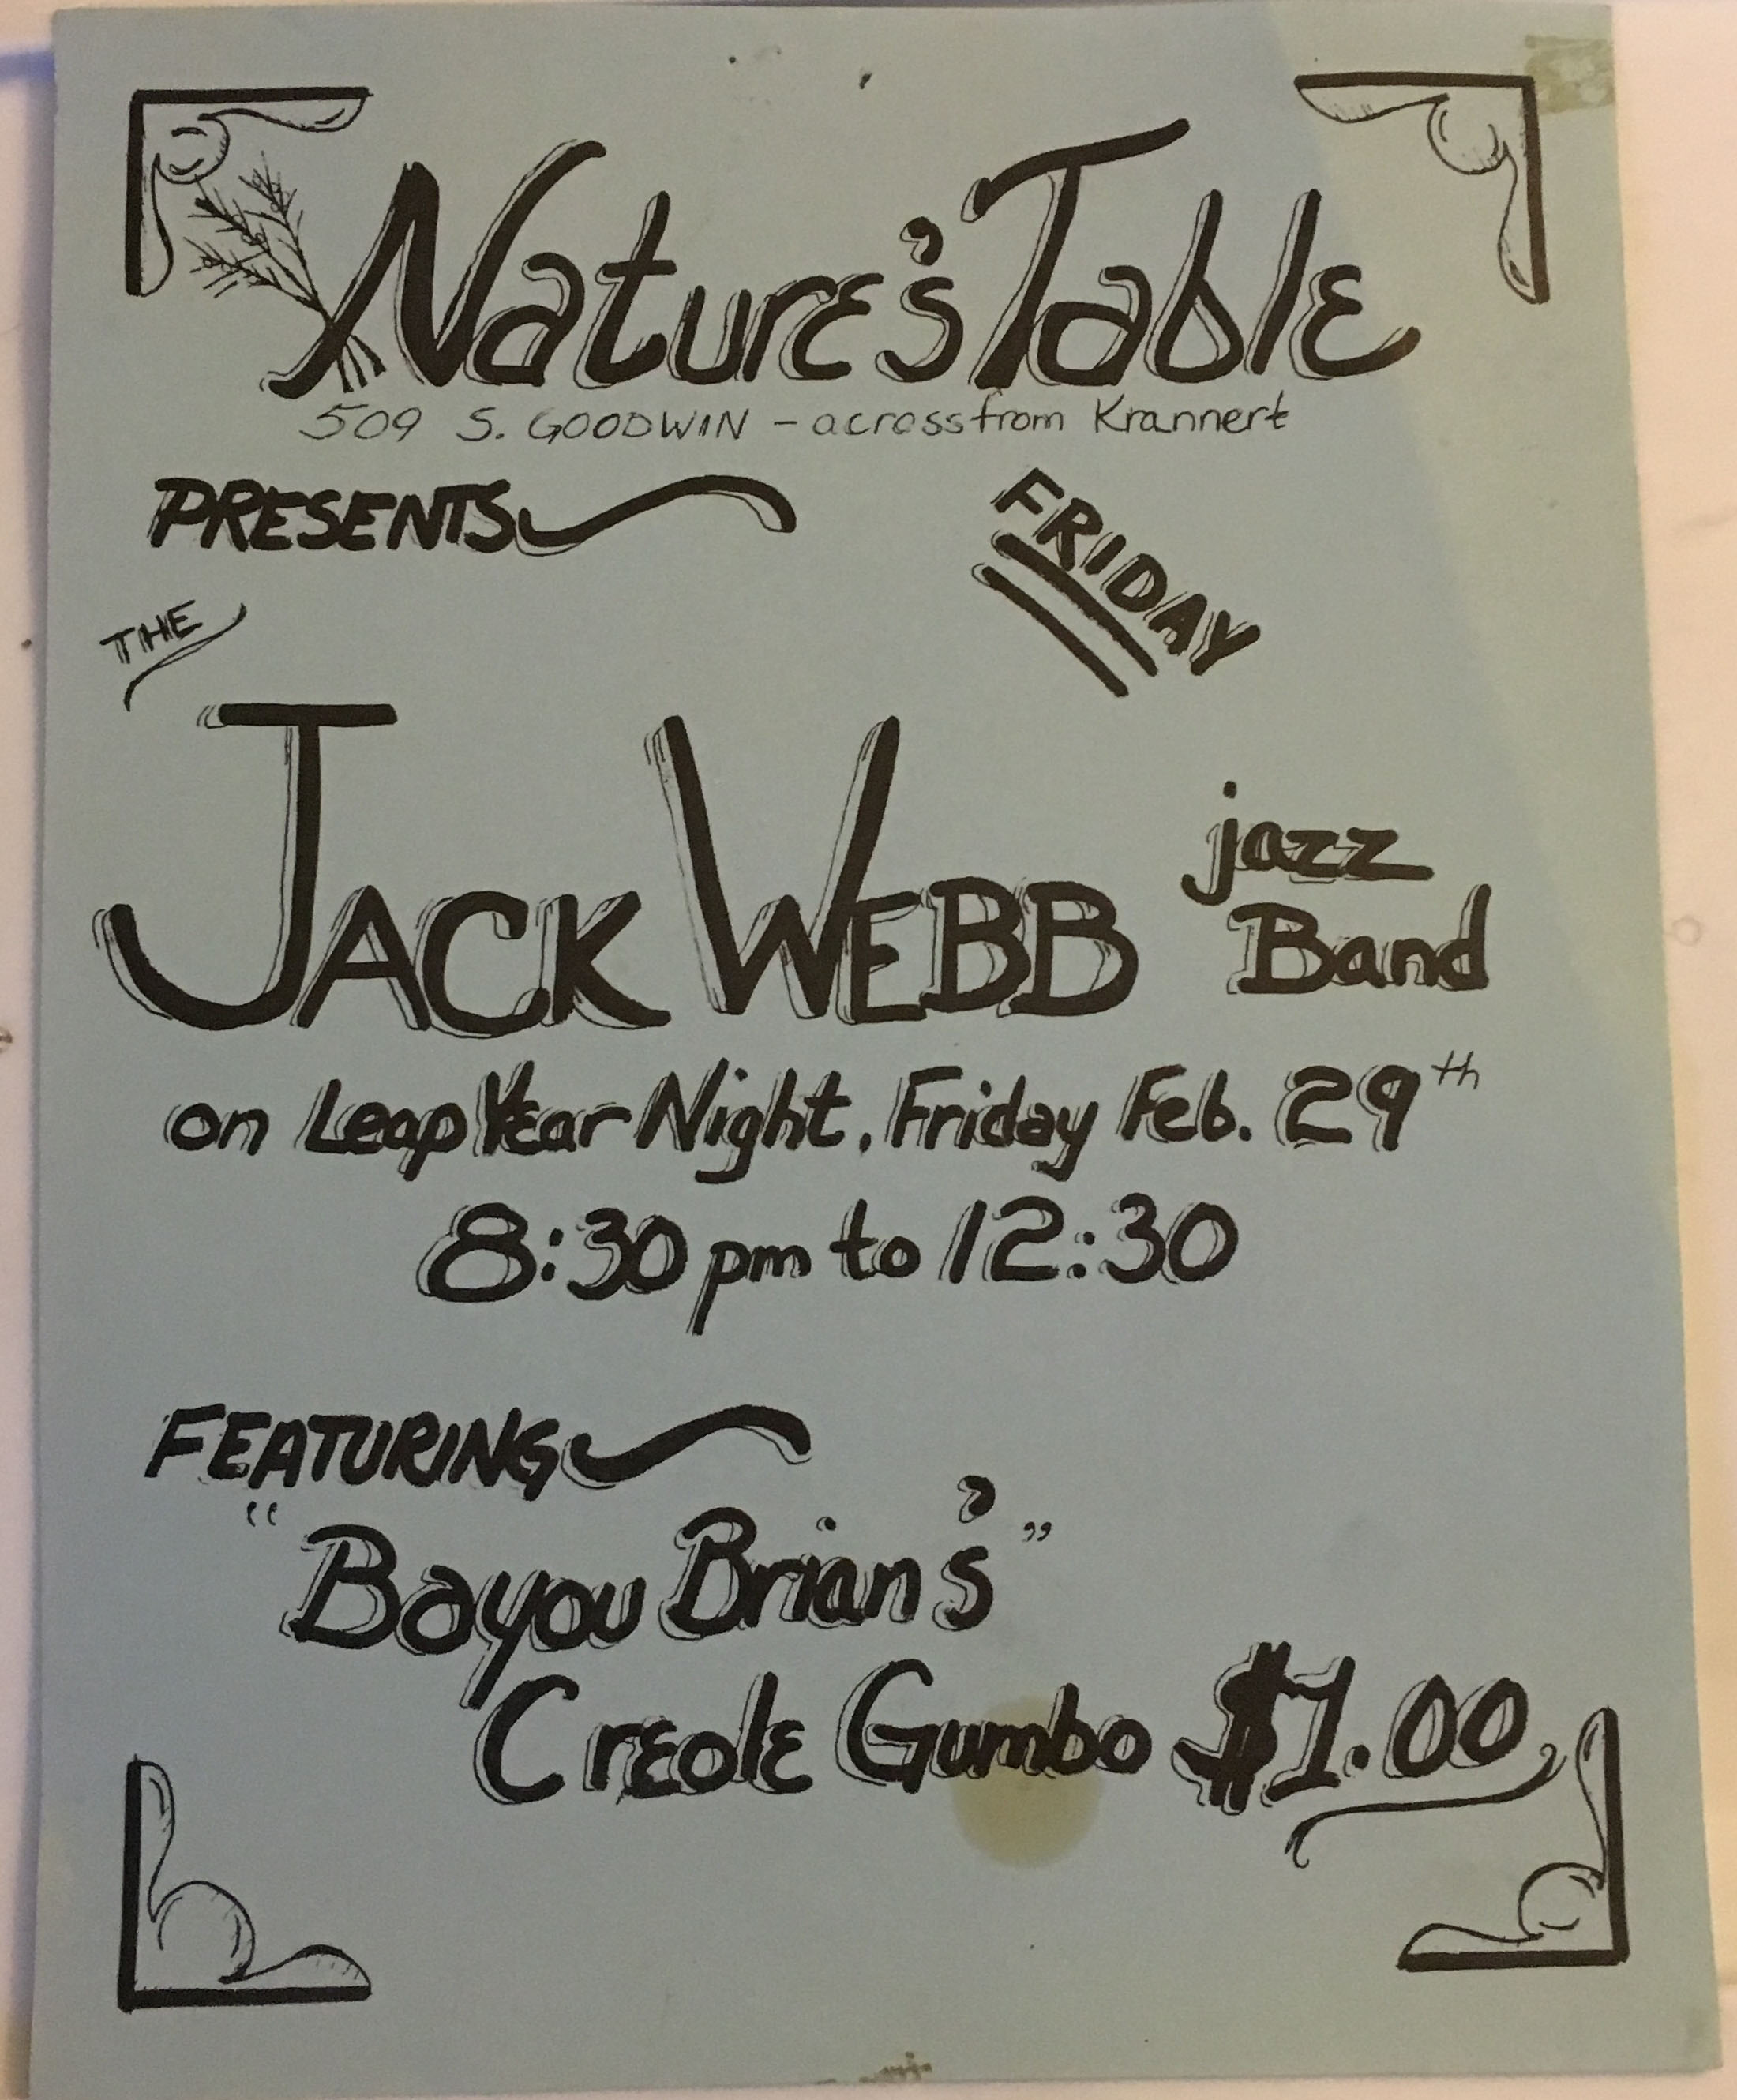 Nature's Table
509 S. GOODWIN - across from Krannert
PRESENTS
FRIDAY
THE
JACK WEBB jazz Band
on Leap Year Night, Friday Feb. 29th
8:30 pm to 12:30
FEATURING
"Bayou Brian's"
Creole Gumbo $1.00